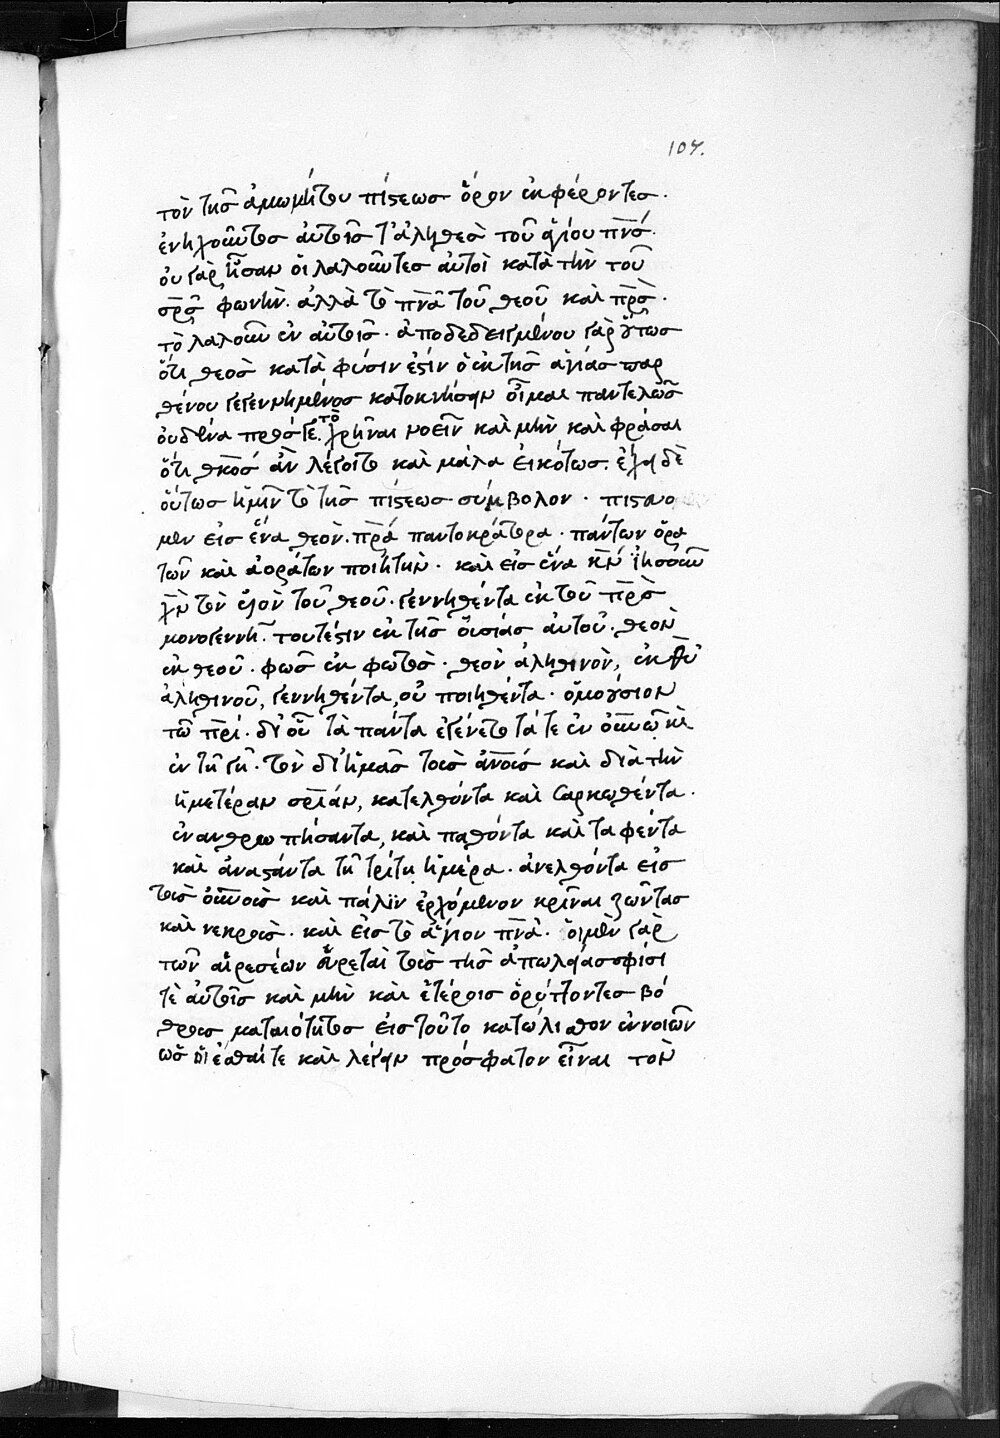 107.
τὸν τῆσ ἀμωμήτου πίστεωσ ὅρον ἐκφέροντεσ.
ἐνηχοῦντοσ αὐτοῖσ τ' ἀληθὲσ τοῦ ἁγίου πνσ.
οὐ γὰρ ἦσαν οἱ λαλοῦντεσ αὐτοὶ κατὰ τὴν τοῦ
σρσ φωνὴν. ἀλλὰ τὸ πνα τοῦ θεοῦ καὶ πρσ.
τὸ λαλοῦν ἐν αὐτοῖσ. ἀποδεδειγμένου γὰρ οὕτωσ
ὅτι θεὸσ κατὰ φύσιν ἐστὶν ὁ ἐκ τῆσ ἁγίασ παρ
θένου γεγεννημένοσ κατοκνήσειν οἶμαι παντελῶσ
οὐδένα πρόσ γε τὸ χρῆναι νοεῖν καὶ μὴν καὶ φράσαι
ὅτι θκοσ ἂν λέγοιτο καὶ μάλα εἰκότωσ. ἔχει δὲ
οὕτωσ ἡμῖν τὸ τῆσ πίστεωσ σύμβολον. πιστεύο
μεν εἰσ ἕνα θεὸν. πρα παντοκράτορα. πάντων ὁρα
τῶν καὶ ἀοράτων ποιητὴν. καὶ εἰσ ἕνα κν ἰησοῦν
χν τὸν υἱὸν τοῦ θεοῦ. γεννηθέντα ἐκ τοῦ πρσ
μονογεννῆ. τουτέστιν ἐκ τῆσ οὐσίασ αὐτοῦ. θεὸν
ἐκ θεοῦ. φῶσ ἐκ φωτὸσ. θεὸν ἀληθινὸν, ἐκ θυ
ἀληθινοῦ, γεννηθέντα, οὐ ποιηθέντα. ὁμοούσιον
τῶ πρι. δι' οὗ τὰ πάντα ἐγένετο τά τε ἐν ουνω καὶ
ἐν τῆ γῆ. τὸν δι' ἡμᾶσ τοὺσ ανουσ καὶ διὰ τὴν
ἡμετέραν σριαν, κατελθόντα καὶ σαρκωθέντα.
ἐνανθρωπήσαντα, καὶ παθόντα καὶ ταφέντα
καὶ ἀναστάντα τῆ τρίτη ἡμέρα. ἀνελθόντα εἰσ
τοὺσ ουνουσ καὶ πάλϊν ἐρχόμενον κρῖναι ζῶντασ
καὶ νεκροὺσ. καὶ εἰσ τὸ ἅγιον πνα. οἱ μὲν γὰρ
τῶν αἱρεσέων εὑρεταὶ τοὺσ τῆσ ἀπωλείασ σφίσί
τε αὐτοῖσ καὶ μὴν καὶ ἑτέροισ ὀρύττοντεσ βό
θρουσ ματαιότητοσ εἰσ τοῦτο κατώλισθον ἐννοιῶν
ὡσ οἴεσθαί τε καὶ λέγειν πρόσφατον εἶναι τὸν